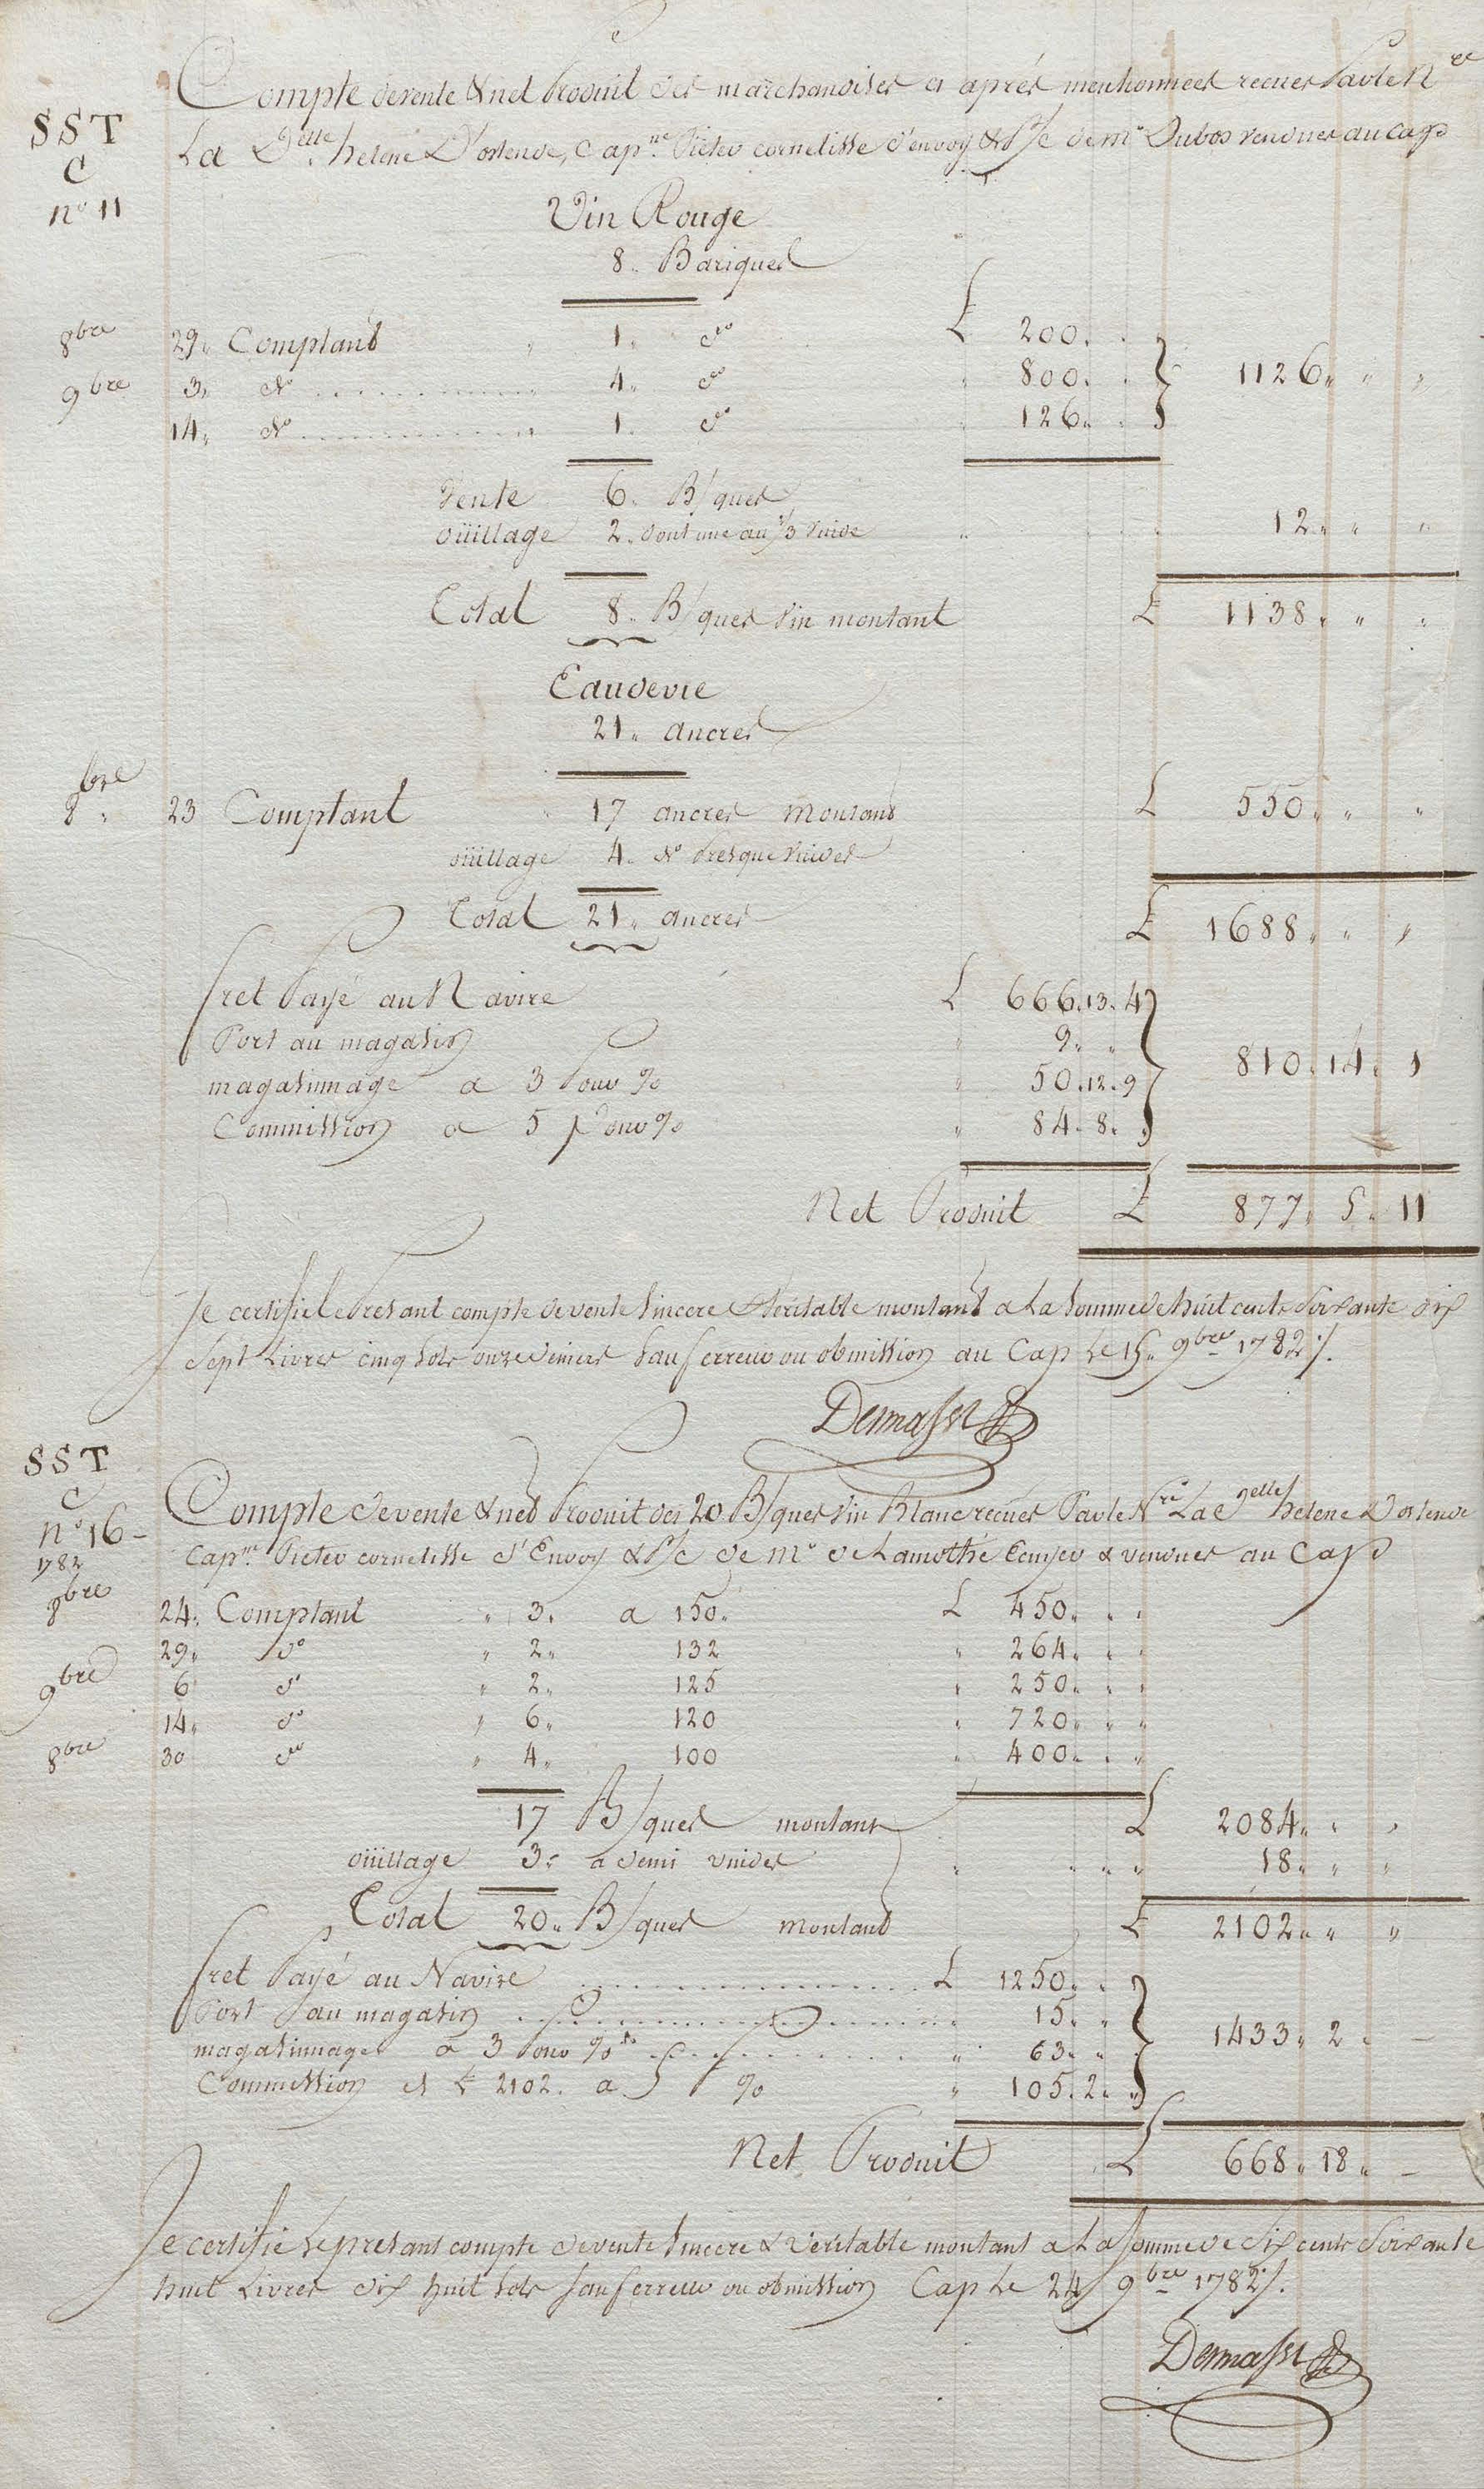 Compte de vente & net Produit des marchandises ci aprés mentionnees recues Par le N.re
SST
C
n° 11
La D.elle helene D'ostende, Cap.ne Pieter cornelisse d'envoy & P/C de m.r Dubos vendues au Cap
Vin Rouge
8. Bariques
8bre 29. Comptant 1. d.o £ 200. . .
9bre 3. d.o 4. d.o 800. . . 1126. " "
14. d.o 1. d.o 126. . .
Vente 6. B/ques
oüillage 2. dont une au 1/3 vuide 12. " "
Total 8. B/ques vin montant £ 1138. " "
Eau de vie
21. ancres
8bre 23 Comptant 17 ancres montant £ 550. " "
oüillage 4. d.o Presque vuides
Total 21. ancres £ 1688. " "
fret Payé au Navire £ 666. 13. 4
Port au magasin " 9. " "
810. 14. 1
magasinnage a 3 Pour % " 50. 12. 9
Commission a 5 Pour % " 84. 8. "
Net Produit £ 877. 5. 11
Je certifie le Presant compte de vente Sincere & Veritable montant a La Somme de huit cents Soixante dix
Sept Livres cinq Sols onze deniers Sauf erreur ou obmission au Cap Le 15. 9bre 1782 ./.
SST
C
n° 16-
1782
Compte de vente & net Produit des 20 B/ques vin Blanc recues Par le N.re La d.elle helene D'ostende
Cap.ne Pieter cornelisse d'Envoy & P/C de m.r de Lamothe Ecuyer & vendues au Cap
8bre 24. Comptant " 3. a 150. £ 450. . .
29. d.o " 2. 132 " 264. . .
9bre 6 d.o " 2. 125 " 250. . .
14. d.o " 6. 120 " 720. " "
8bre 30 d.o " 4. 100 " 400. . "
17 B/ques montant £ 2084. " "
oüillage 3. a demi vuides 18. " "
Total 20. B/ques montant £ 2102. " "
fret Payé au Navire £ 1250. . "
Port au magasin " 15. " "
1433. 2. -
magasinnage a 3 Pour % " 63. " "
Commission et £ 2102. a 5 % " 105. 2. "
Net Produit £ 668. 18. -
Je certifie Le presant compte de vente Sincere & Veritable montant a La Somme de Six cents Soixante
huit Livres dix huit Sols Sauf erreur ou obmission Cap Le 24 9bre 1782 ./.